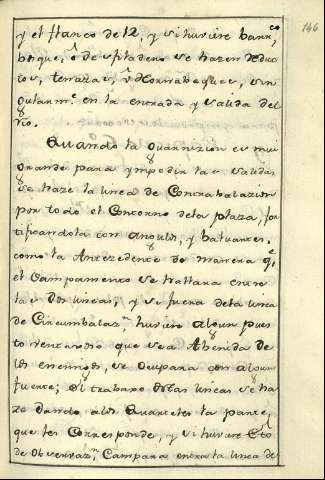 146
y el flanco de 12, y si huviere barran
bosque, ô desfiladeros se hazen Reduc
tos, terrazas, ô Hornabeques, sin
gularmte en la entrada y salida del
Rio.
Quando la Guarnizion es mui
grande para ympedir las salidas
se haze la linea de Contrabalazion
por todo el Contorno dela plaza, for
tificandola con angulos, y baluartes,
como la Antezedente de manera qe
el Campamento se hallara entre
las dos lineas, y si fuera dela linea
de Circumbalazn huviere algun pues
to ventajoso que sea Abenida de
los enemigos, se Ocupara con algun
fuerte; El trabajo destas lineas se ha
ze dando alos Quarteles la parte,
que les Corresponde, y si huviere Exto
de Observazn Campara entre la linea de